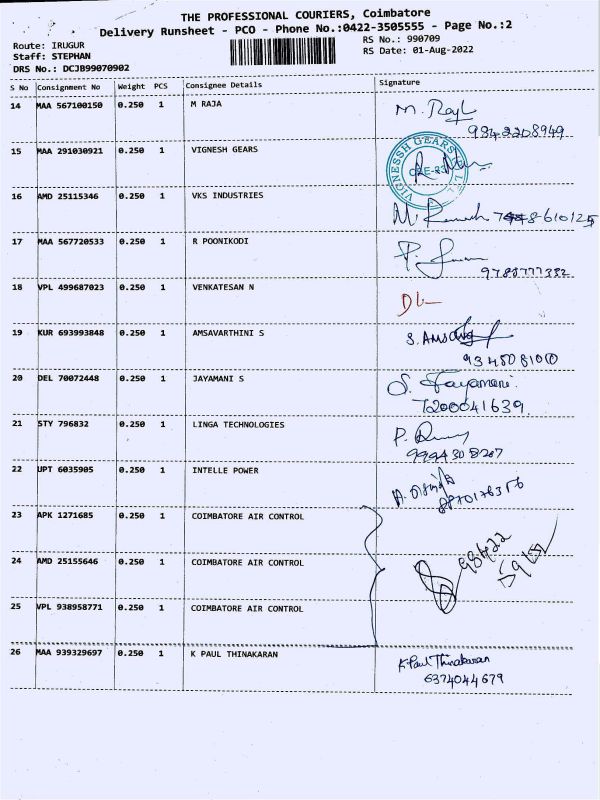 THE PROFESSIONAL COURIERS, Coimbatore
Delivery Runsheet - PCO - Phone No.:0422-3505555 - Page No.:2
Route: IRUGUR RS No.: 990709
Staff: STEPHAN RS Date: 01-Aug-2022
DRS No.: DCJB99070902
S No Consignment No Weight PCS Consignee Details Signature
14 MAA 567100150 0.250 1 M RAJA M. Raja
9342208949
15 MAA 291030921 0.250 1 VIGNESH GEARS VIGNESSH GEARS
16 AMD 25115346 0.250 1 VKS INDUSTRIES M. Ramesh
17 MAA 567720533 0.250 1 R POONIKODI
9788777332
18 VPL 499687023 0.250 1 VENKATESAN N
19 KUR 693993848 0.250 1 AMSAVARTHINI S S. AMSA
20 DEL 70072448 0.250 1 JAYAMANI S S. Jayamani
7200041639
21 STY 796832 0.250 1 LINGA TECHNOLOGIES
22 UPT 6035905 0.250 1 INTELLE POWER
23 APK 1271685 0.250 1 COIMBATORE AIR CONTROL
98422
24 AMD 25155646 0.250 1 COIMBATORE AIR CONTROL
25 VPL 938958771 0.250 1 COIMBATORE AIR CONTROL
26 MAA 939329697 0.250 1 K PAUL THINAKARAN K Paul Thinakaran
6374044679